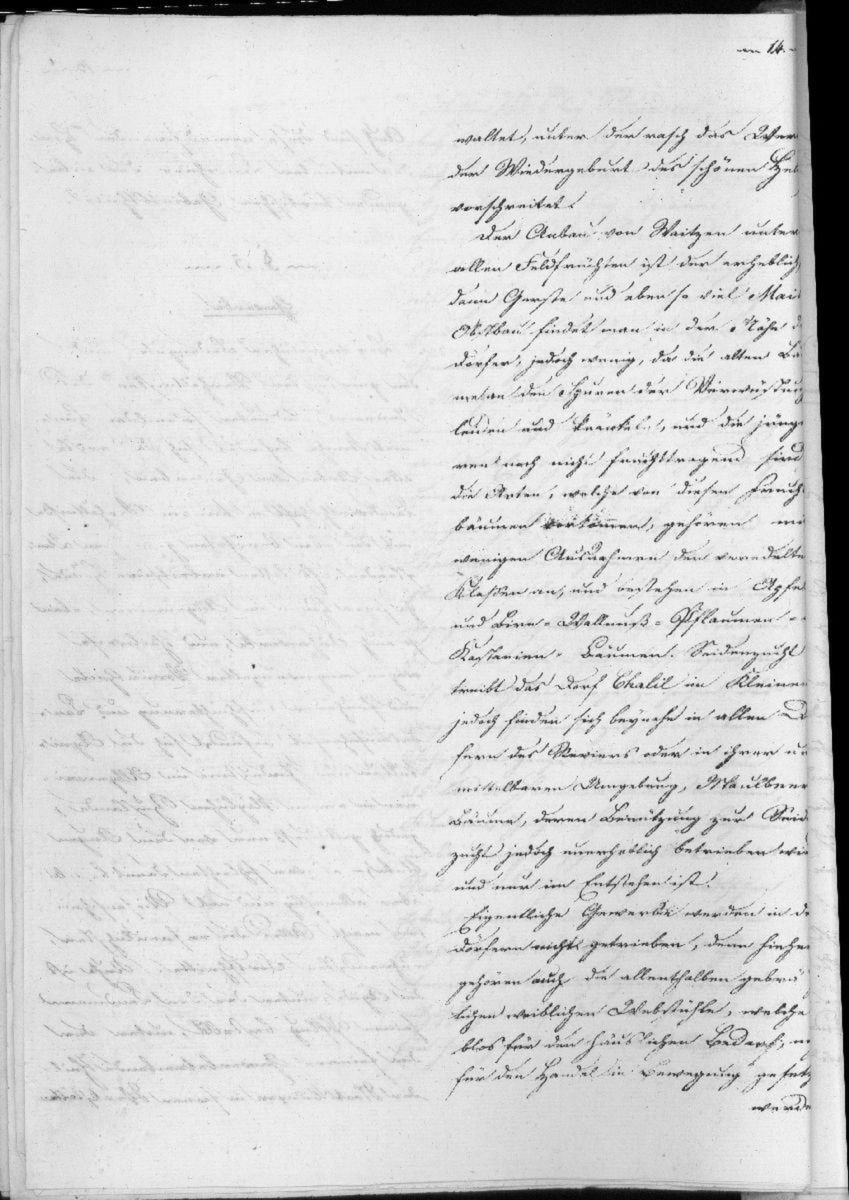 14.
waltet, unter der rasch das Wer
der Wiedergeburt des schönen He
vorschreitet.
Der Anbau von Waitzen unter
allen Feldfrüchten ist der erheblich
dann Gerste und eben so viel Mai
Obstbau findet man in der Nähe d
Dörfer, jedoch wenig, da die alten Bä
me an den Spuren der Verwüstung
leiden und kränkeln, und die jünge
ren noch nicht fruchttragend sind
die Arten, welche von diesen Fruch
bäumen vorkommen, gehören m
wenigen Ausnahmen den veredelte
Klaßen an, und bestehen in Apfe
und Birn- Wallnuß- Pflaumen-
Kastanien- Bäumen. Seidenzucht
treibt das Dorf Chalil im Kleinen
jedoch finden sich beynahe in allen Dö
fern des Reviers oder in ihrer un
mittelbaren Umgebung, Maulbeer
Bäume, deren Benützung zur Seid
zucht jedoch unerheblich betrieben wir
und nur im Entstehen ist.
Eigentliche Gewerbe werden in de
Dörfern nicht getrieben, denn hieher
gehören auch die allenthalben gebräu
lichen weiblichen Webstühle, welche
blos für den häuslichen Bedarf, ni
für den Handel in Bewegung gesetz
werde